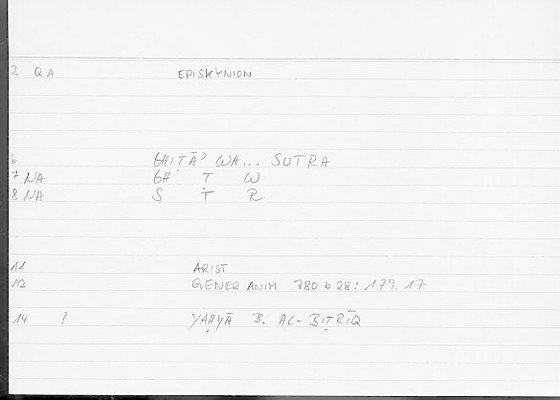 2 QA EPISKYNION
6 GHIṬĀʾ WA... SUTRA
7 NA GH Ṭ W
8 NA S T R
11 ARIST
12 GENER ANIM 780 b 28: 179.17
14 ? YAḤYĀ B. AL-BIṬRĪQ